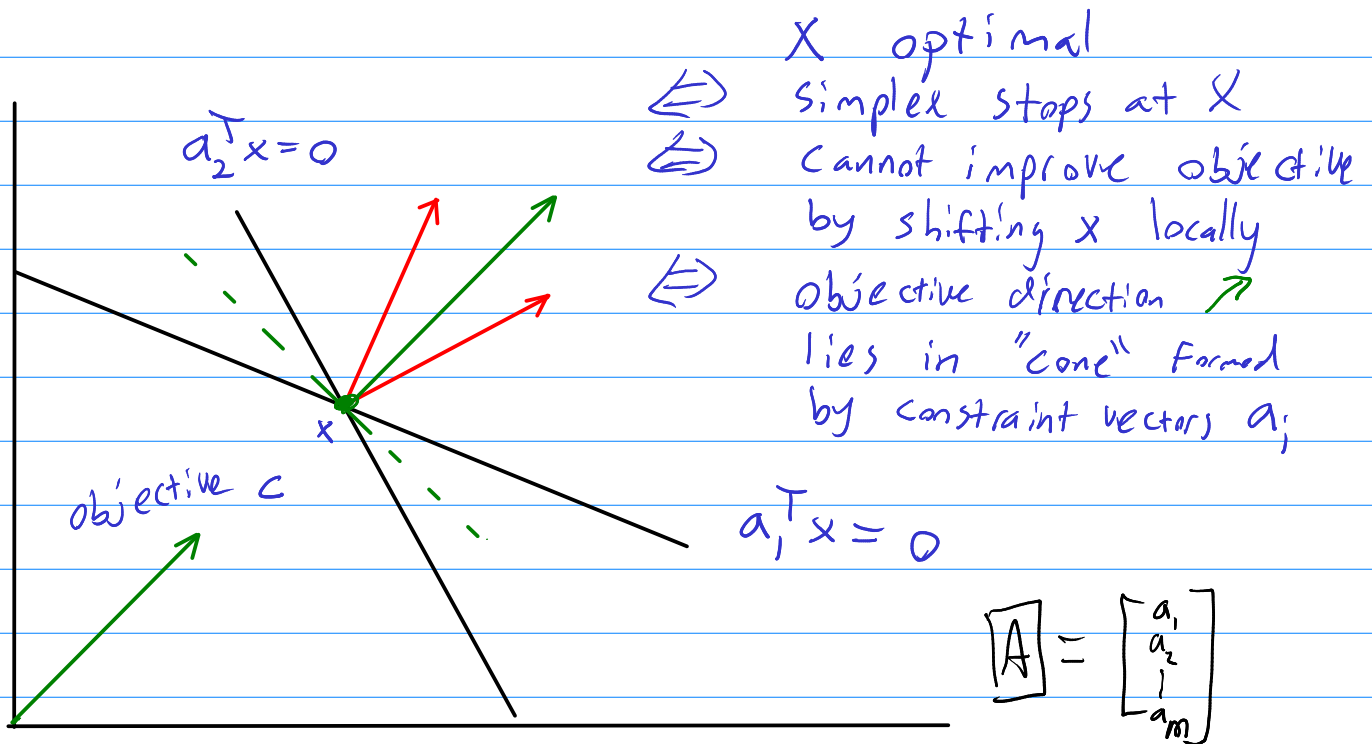 X optimal
⇔ simplex stops at X
⇔ cannot improve objective
by shifting x locally
⇔ objective direction ↗
lies in "cone" formed
by constraint vectors aᵢ
a₂ᵀx=0
x
objective c
a₁ᵀx=0
A = [a₁
a₂
⋮
aₘ]